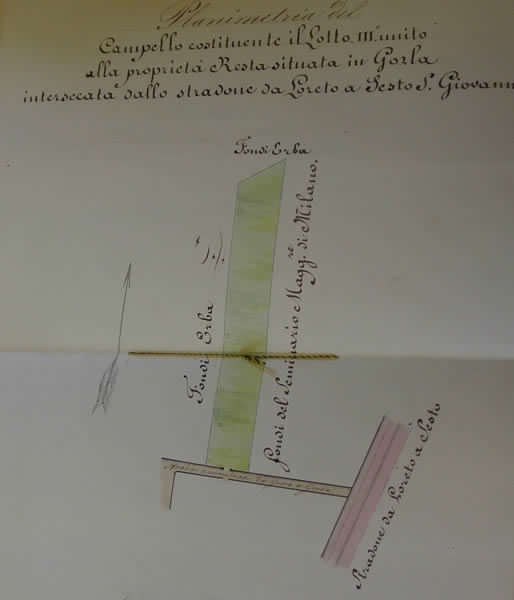 Planimetria del
Campello costituente il Lotto III° unito
alla proprietà Resta situata in Gorla
intersecata dallo stradone da Loreto a Sesto S. Giovann
Fondi Erba
Fondi Erba
Fondi del Seminario Magg.re di Milano.
Stradone da Loreto a Sesto